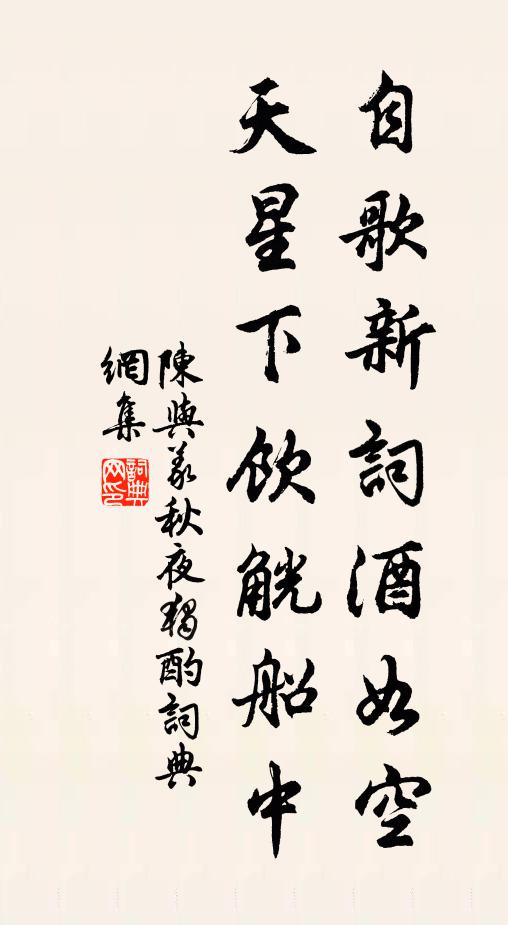 自歌新詞酒如空
天星下飲觥船中
陳與義秋夜獨酌詞典
網集
詞典網印